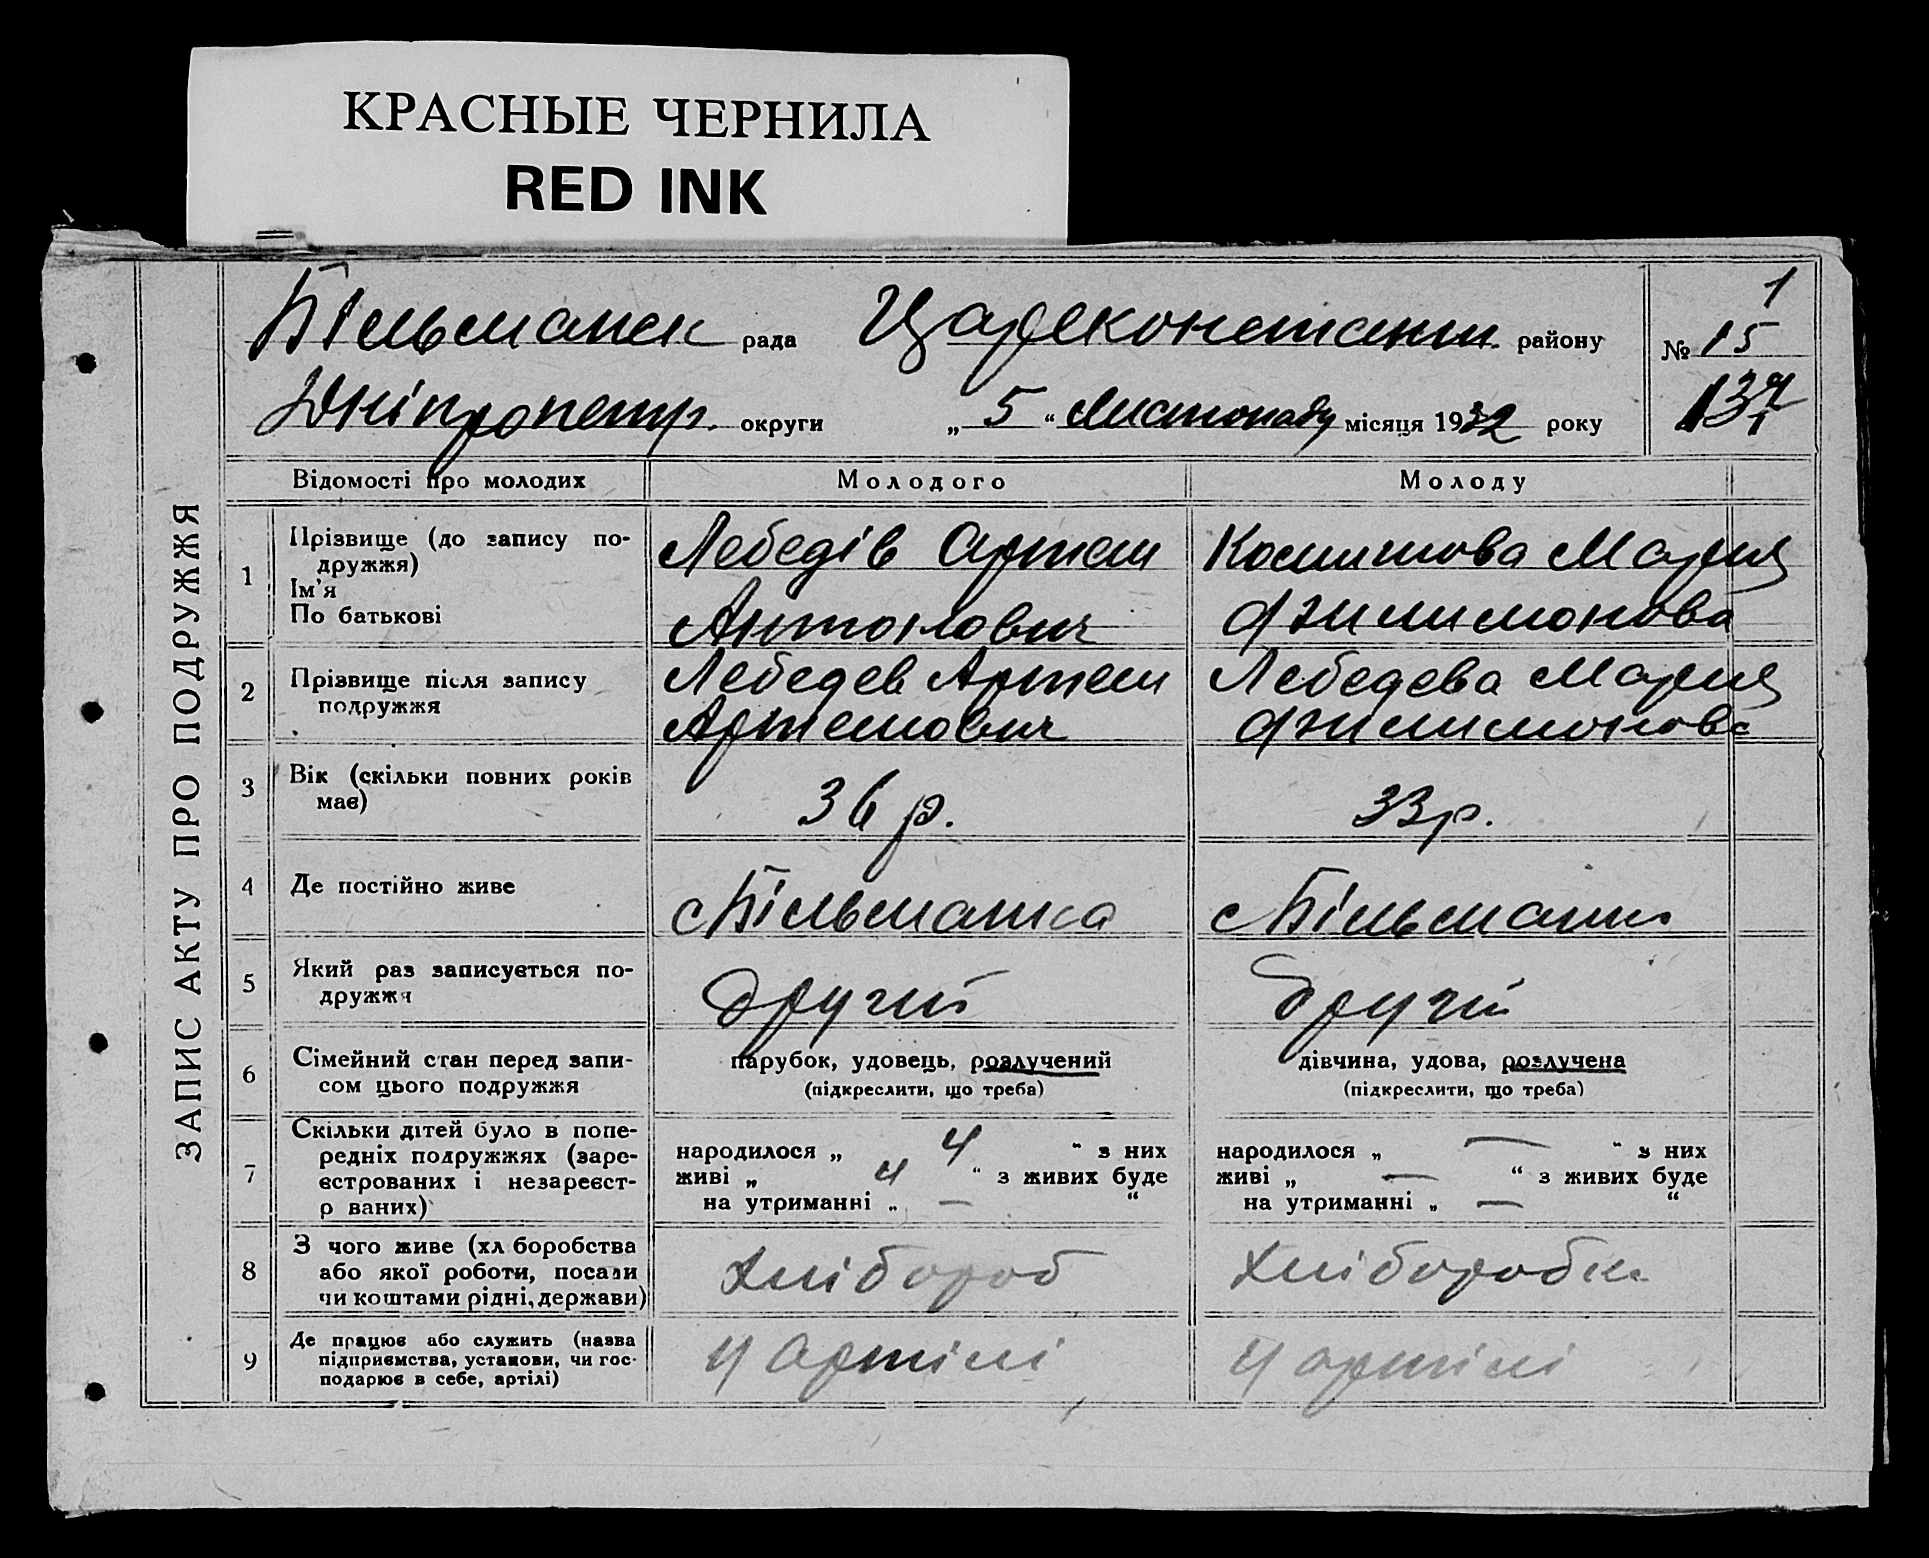 КРАСНЫЕ ЧЕРНИЛА
RED INK
ЗАПИС АКТУ ПРО ПОДРУЖЖЯ
Більманск рада Цареконстант. району № 1 15
Дніпропетр. округи „ 5 “ Листопаду місяця 1932 року 137
Відомості про молодих Молодого Молоду
1 Прізвище (до запису по- Лебедів Артем Мария
дружжя)
Ім'я
По батькові Антонович Филимонова
2 Прізвище після запису Лебедев Артем Лебедева Мария
подружжя Артемович Филимонова
3 Вік (скільки повних років 36 р. 33 р.
має)
4 Де постійно живе с Більманка с Більманка
5 Який раз записується по- другий другий
дружжя
6 Сімейний стан перед запи- парубок, удовець, розлучений дівчина, удова, розлучена
сом цього подружжя (підкреслити, що треба) (підкреслити, що треба)
7 Скільки дітей було в попе-
редніх подружжях (заре- народилося „ 4 “ з них народилося „ — “ з них
єстрованих і незареєст- живі „ 4 “ з живих буде живі „ — “ з живих буде
р ваних) на утриманні „ — “ на утриманні „ — “
8 З чого живе (хл боробства
або якої роботи, посади Хлібороб Хліборобка
чи коштами рідні, держави)
9 Де працює або служить (назва
підприємства, установи, чи гос- У артілі У артілі
подарює в себе, артілі)